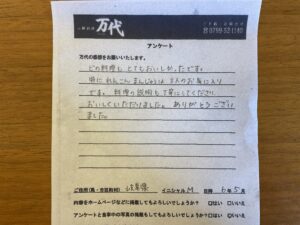 万代
ご予約・お問合せ
☎0799-52-1160
アンケート
万代の感想をお願いいたします。
どの料理も とてもおいしかったです。
特に れんこん まんじゅうは 主人のお気に入り
です。料理の説明も丁寧にしてくださり、
おいしくいただけました。ありがとうござい
ました。
ご住所(県・市区町村) 岐阜県 イニシャル M 日時 6年5月
内容をホームページなどに掲載してもよろしいでしょうか? □はい □いいえ
アンケートと食事中の写真の掲載もしてもよろしいでしょうか? □はい □いいえ